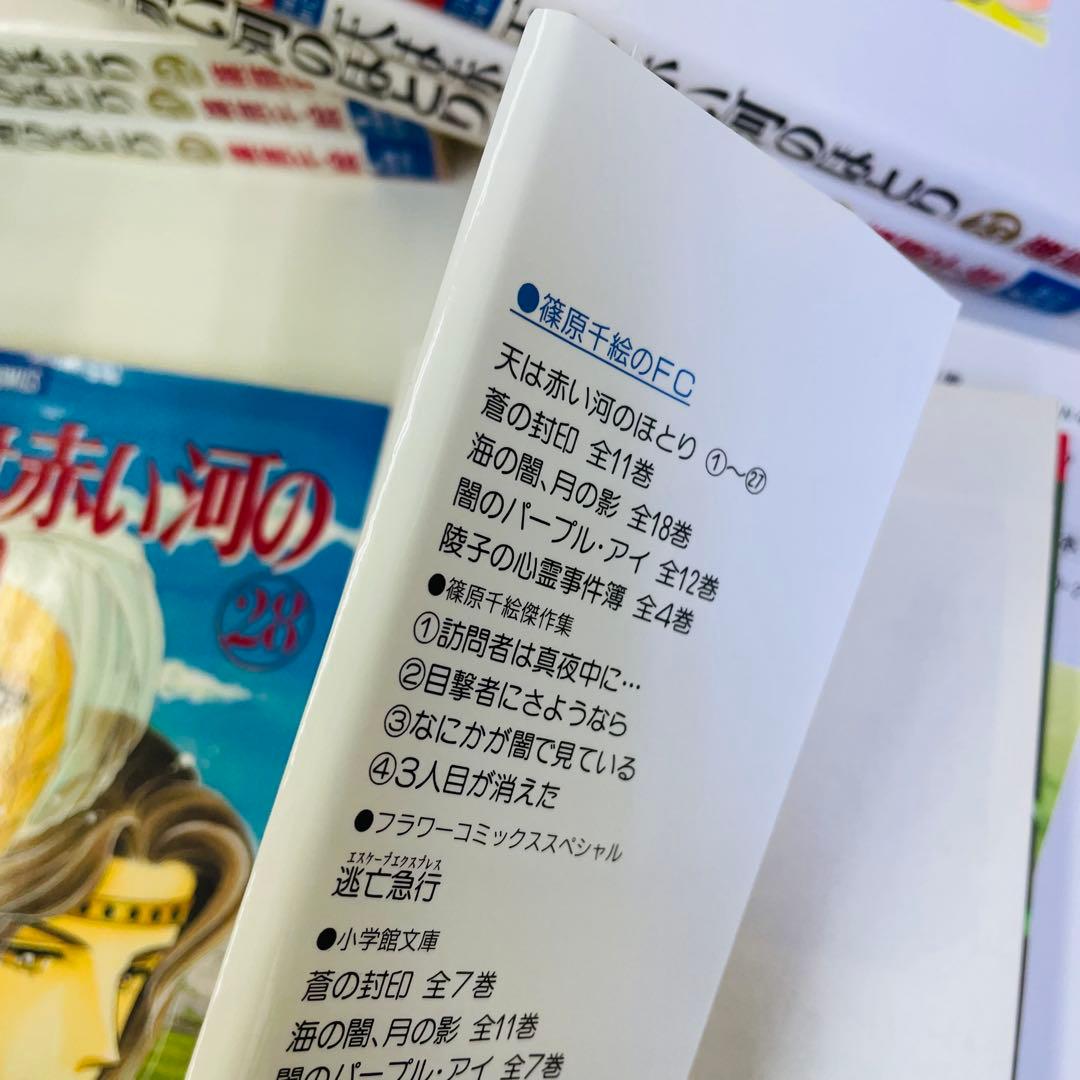 ●篠原千絵のFC
天は赤い河のほとり ①～㉗
蒼の封印 全11巻
海の闇、月の影 全18巻
闇のパープル・アイ 全12巻
陵子の心霊事件簿 全4巻
●篠原千絵傑作集
①訪問者は真夜中に…
②目撃者にさようなら
③なにかが闇で見ている
④3人目が消えた
●フラワーコミックススペシャル
エスケープエクスプレス
逃亡急行
●小学館文庫
蒼の封印 全7巻
海の闇、月の影 全11巻
闇のパープル・アイ 全7巻
は赤い河の
28
い河のほとり